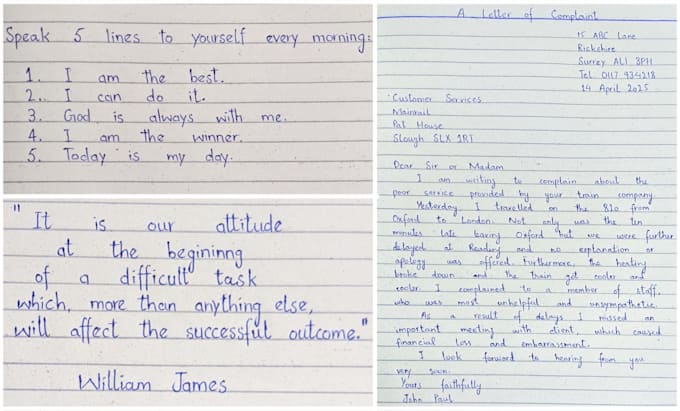 Speak 5 lines to yourself every morning:
1. I am the best.
2. I can do it.
3. God is always with me.
4. I am the winner.
5. Today is my day.
"It is our attitude
at the begininng
of a difficult task
which, more than anything else,
will affect the successful outcome."
William James
A Letter of Complaint
15 ABC Lane
Rickshire
Surrey AL1 3PH
Tel 0117 934218
14 April 2025
Customer Services
Mainrail
Pat House
Slough SLX 1RT
Dear Sir or Madam
I am writing to complain about the
poor service provided by your train company.
Yesterday I travelled on the 810 from
Oxford to London. Not only was the
minutes late leaving Oxford but we were further
delayed at Reading and no explanation or
apology was offered. Furthermore, the heating
broke down and the train got cooler and
cooler. I complained to a member of staff,
who was most unhelpful and unsympathetic.
As a result of delays I missed an
important meeting with client, which caused
financial loss and embarrassment.
I look forward to hearing from you
very soon.
Yours faithfully
John Paul